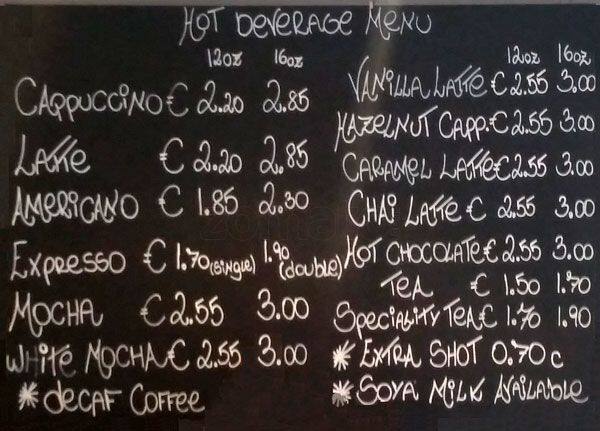 HOT BEVERAGE MENU
12oz 16oz
CAPPUCCINO € 2.20 2.85
LATTE € 2.20 2.85
AMERICANO € 1.85 2.30
EXPRESSO € 1.70 (SINGLE) 1.90 (double)
MOCHA € 2.55 3.00
WHITE MOCHA € 2.55 3.00
* decAF COFFEE
12oz 16oz
VANILLA LATTE € 2.55 3.00
HAZELNUT CAPP. € 2.55 3.00
CARAMEL LATTE € 2.55 3.00
CHAI LATTE € 2.55 3.00
HOT CHOCOLATE € 2.55 3.00
TEA € 1.50 1.70
SPECIALITY TEA € 1.70 1.90
* EXTRA SHOT 0.70 c
* SOYA MILK AVAILABLE